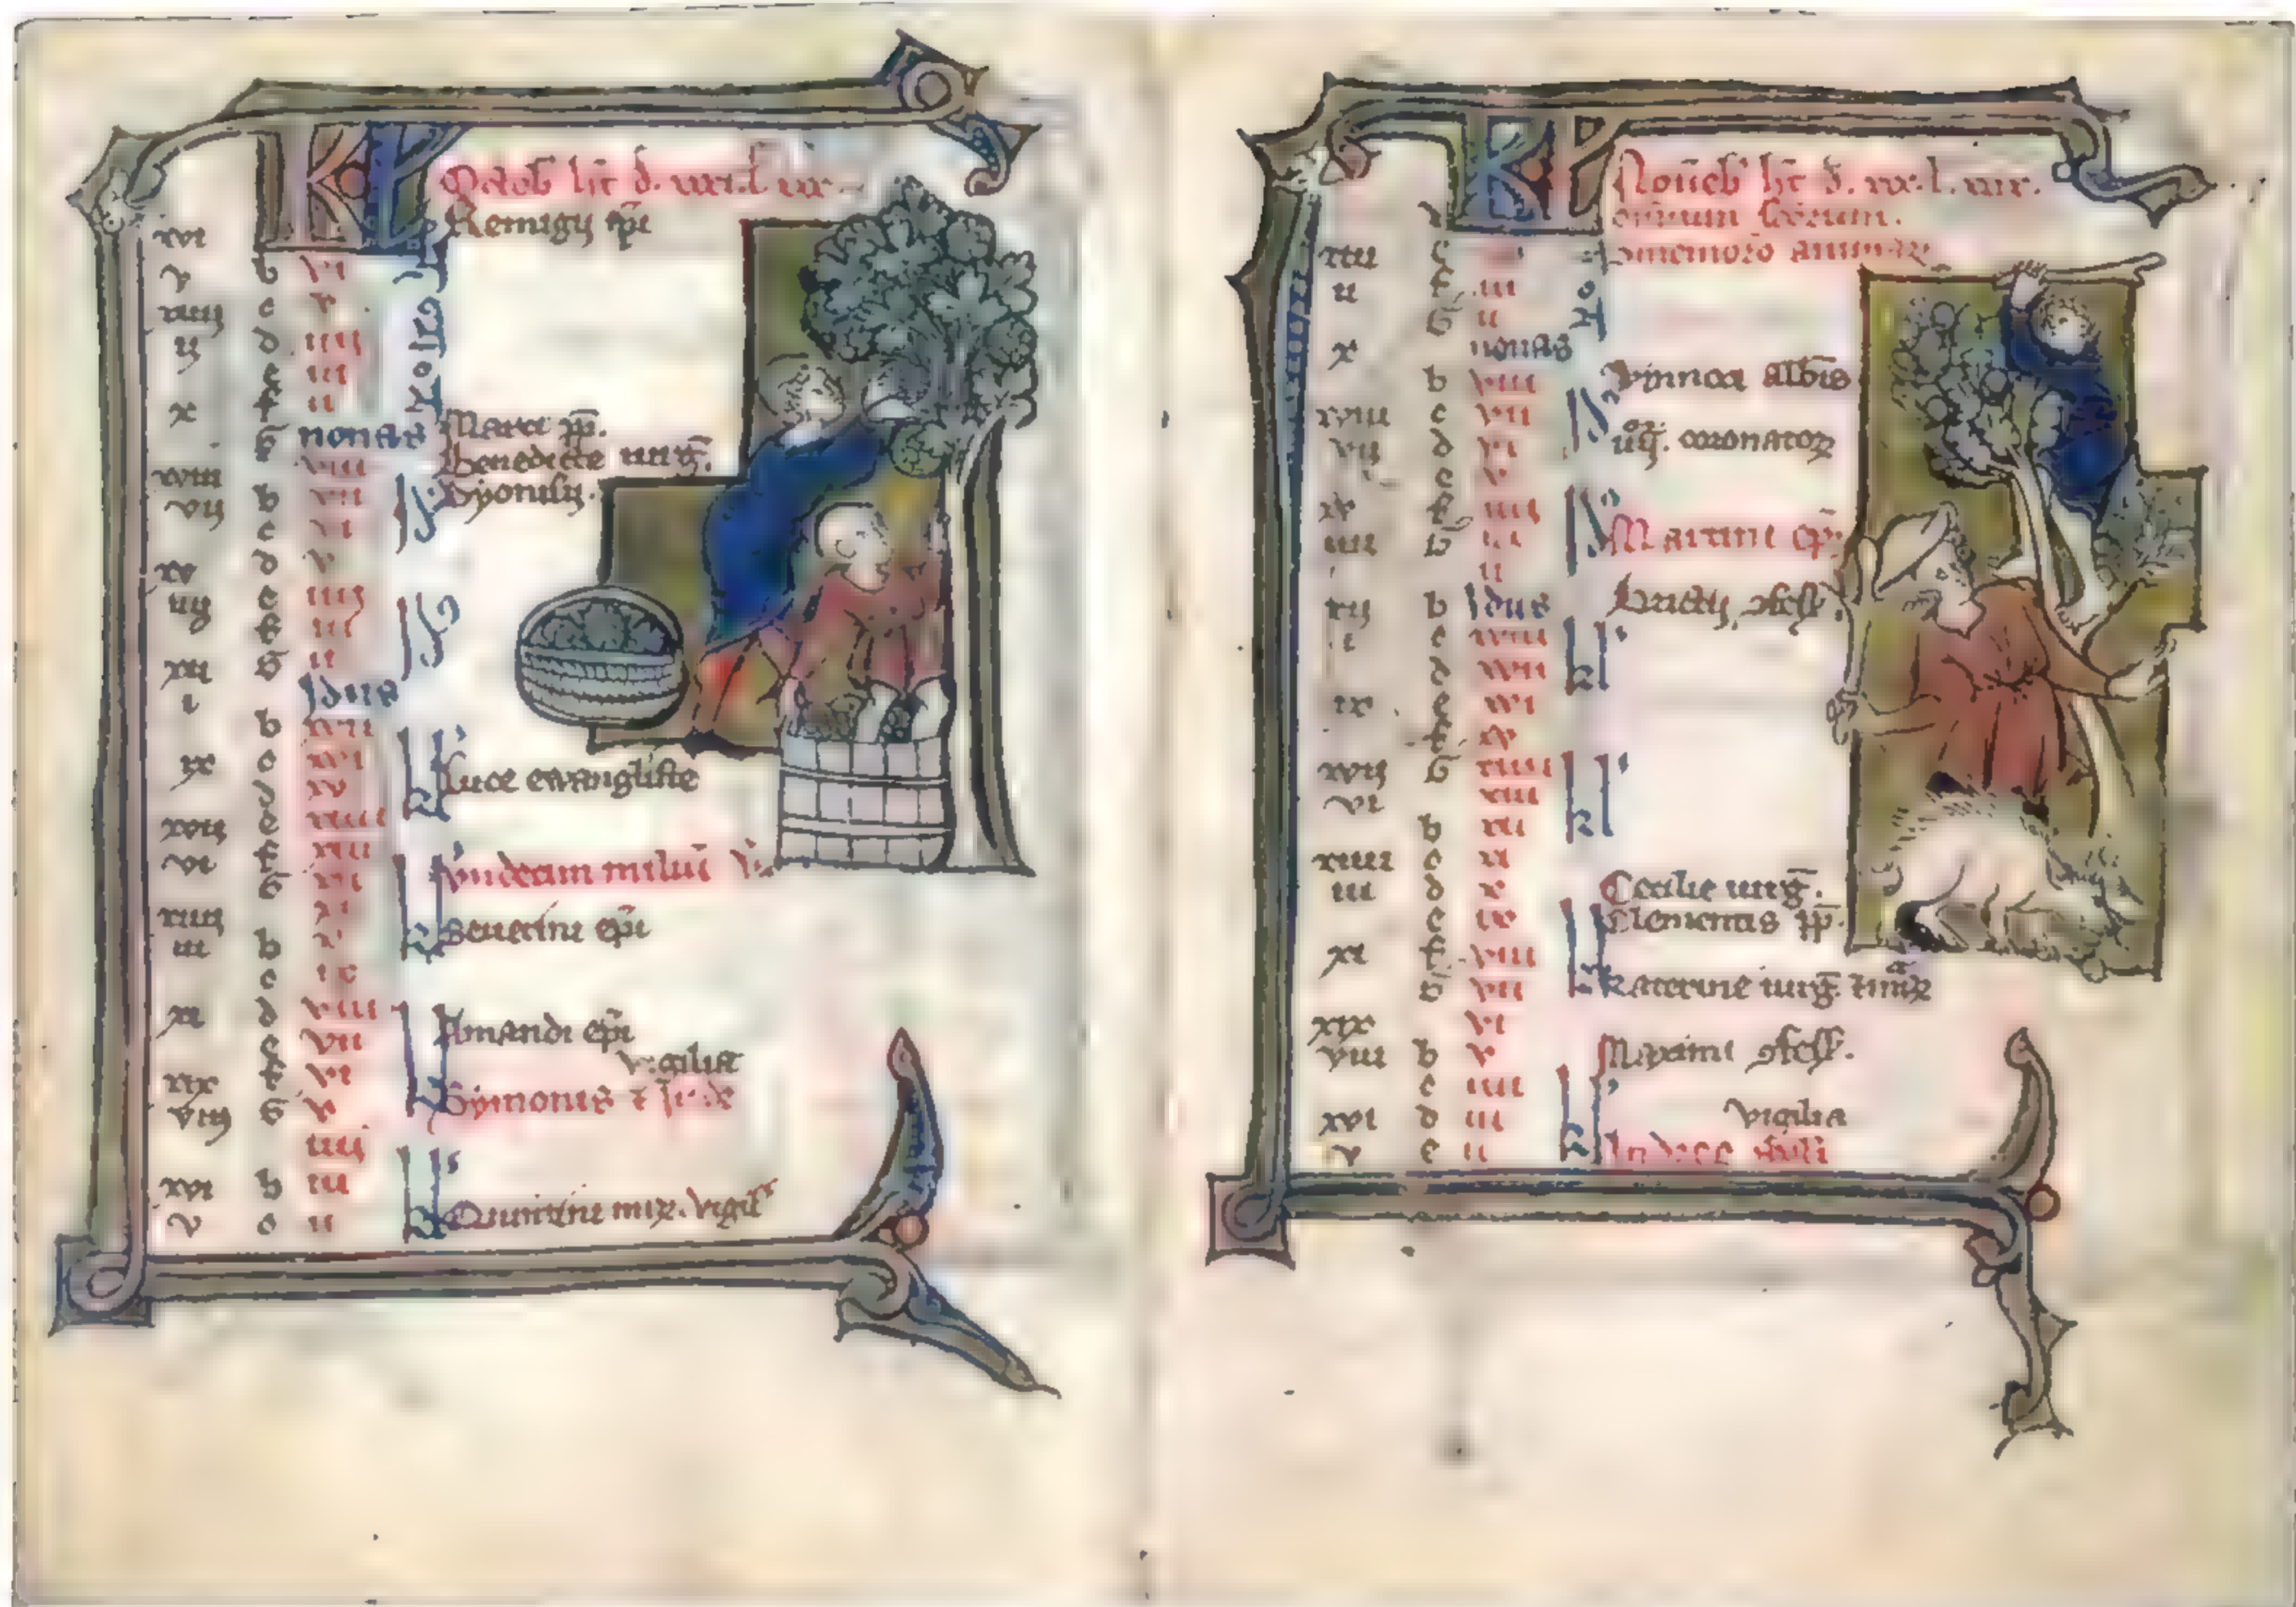 KL Octob h̄t d. xxxi. l. xxx.
xvi Remigii ep̄i
v b vi
xiii c v
ii d iiii
e iii
x f ii
G nonas Marci p̄p.
xviii viii Benedicte uirḡ.
vii b vii Dyonisii.
c vi
xv d v
iiii e iiii
f iii
xii G ii
i Idus
b xvii
ix c xvi
d xv Luce ewangliste
xvii e xiiii
vi f xiii
G xii Vndecim miliū
xiiii xi
iii b x Seuerini ep̄i
c ix
xi d viii
e vii Amandi ep̄i
xix f vi vigilia
viii G v Symonis ⁊ Iude
iiii
xvi b iii
v c ii Quintini mr̄. vigil
KL Nouēb h̄t d. xxx. l.
omnium scōrum.
xiii e
ii f iii
G ii
x nonas
b viii
xviii c vii Vinnoci albīs
vii d vi iiiior. coronatoꝝ
e v
xv f iiii
iiii G iii Martini ep̄i
ii
xii b Idus Brictii ꝯfess.
i c xviii
d xvii
ix e xvi
f xv
xvii G xiiii
vi xiii
b xii
xiiii c xi
iii d x Cecilie uirḡ.
e ix Clementis p̄p.
xi f viii
G vii Katerine uirḡ.
xix vi
viii b v Maximi ꝯfess.
c iiii
xvi d iii vigilia
v e ii Andree